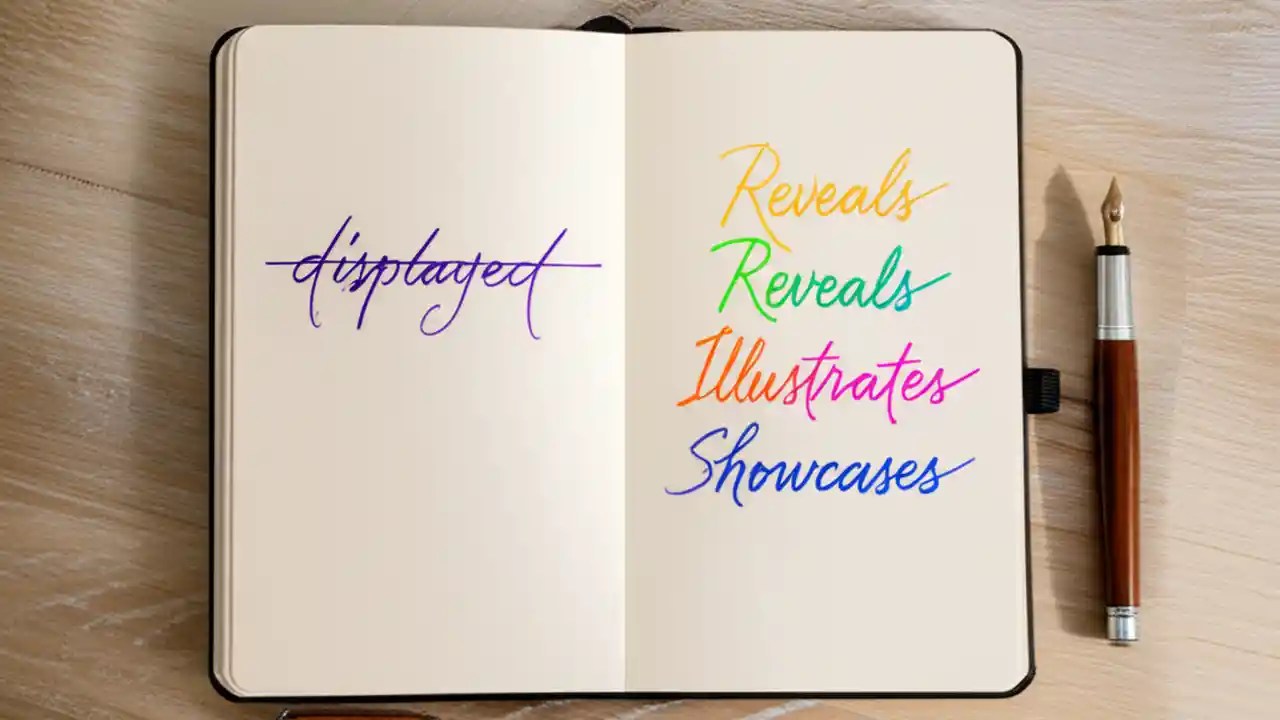 displayed
Reveals
Reveals
Illustrates
Showcases